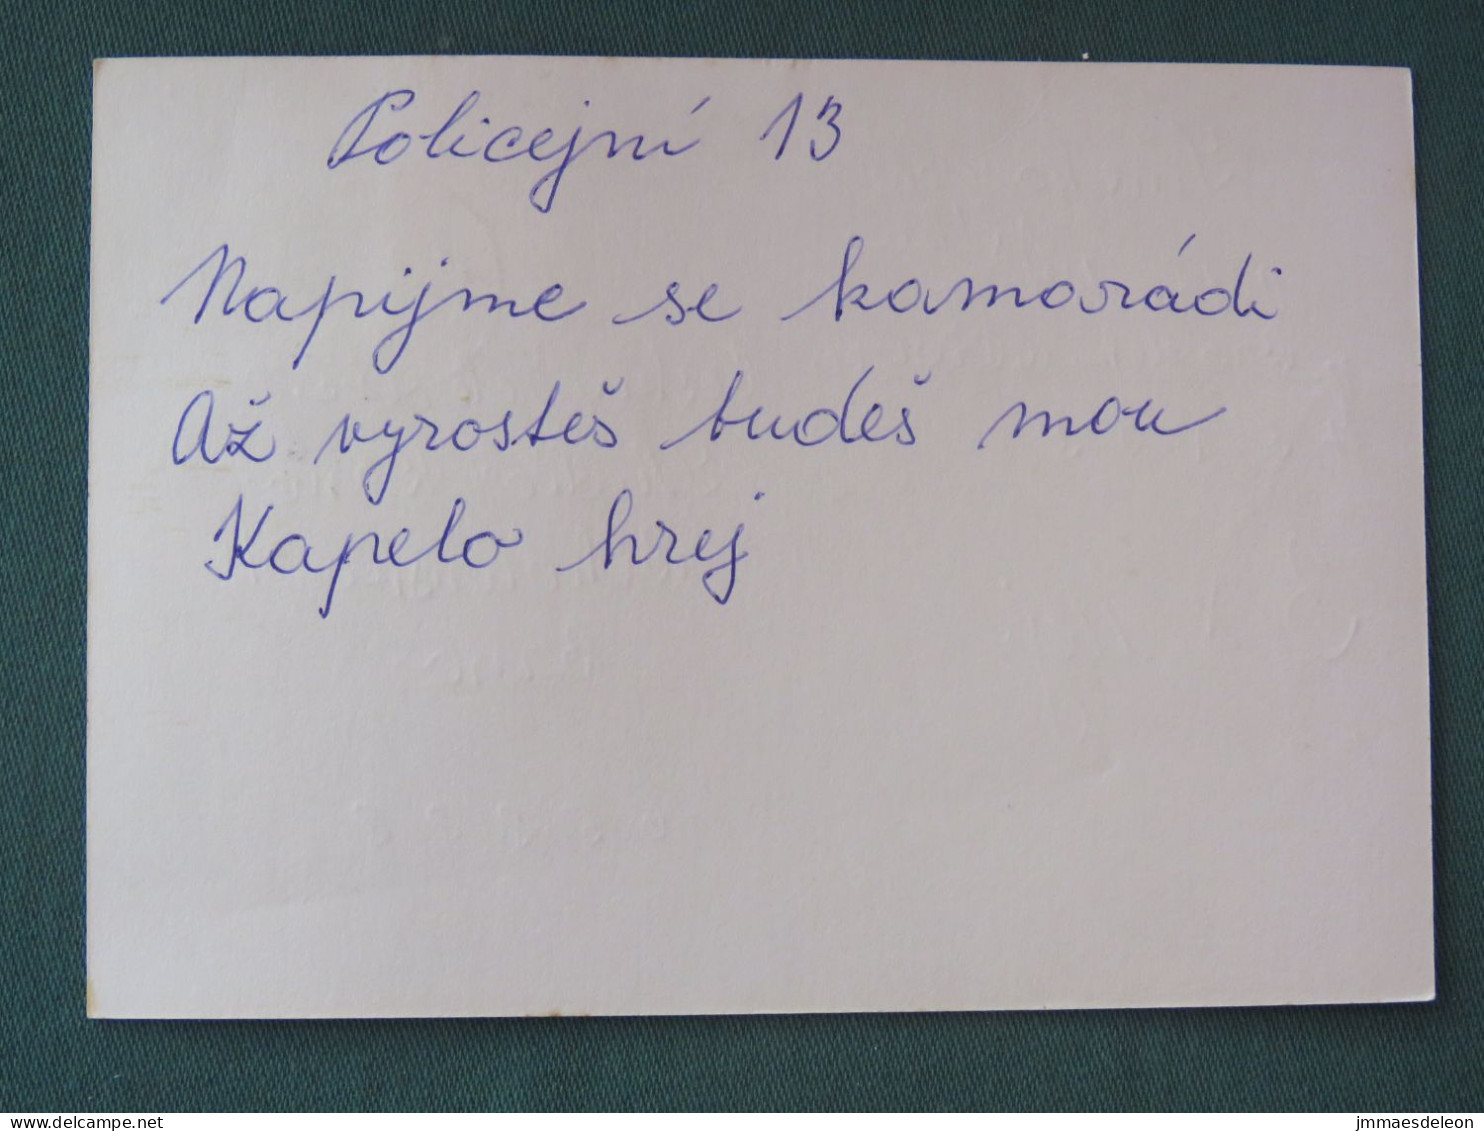 Policejní 13
Napijme se kamarádi
Až vyrosteš budeš mou
Kapelo hrej
delcampe.net
jmmaesdeleon